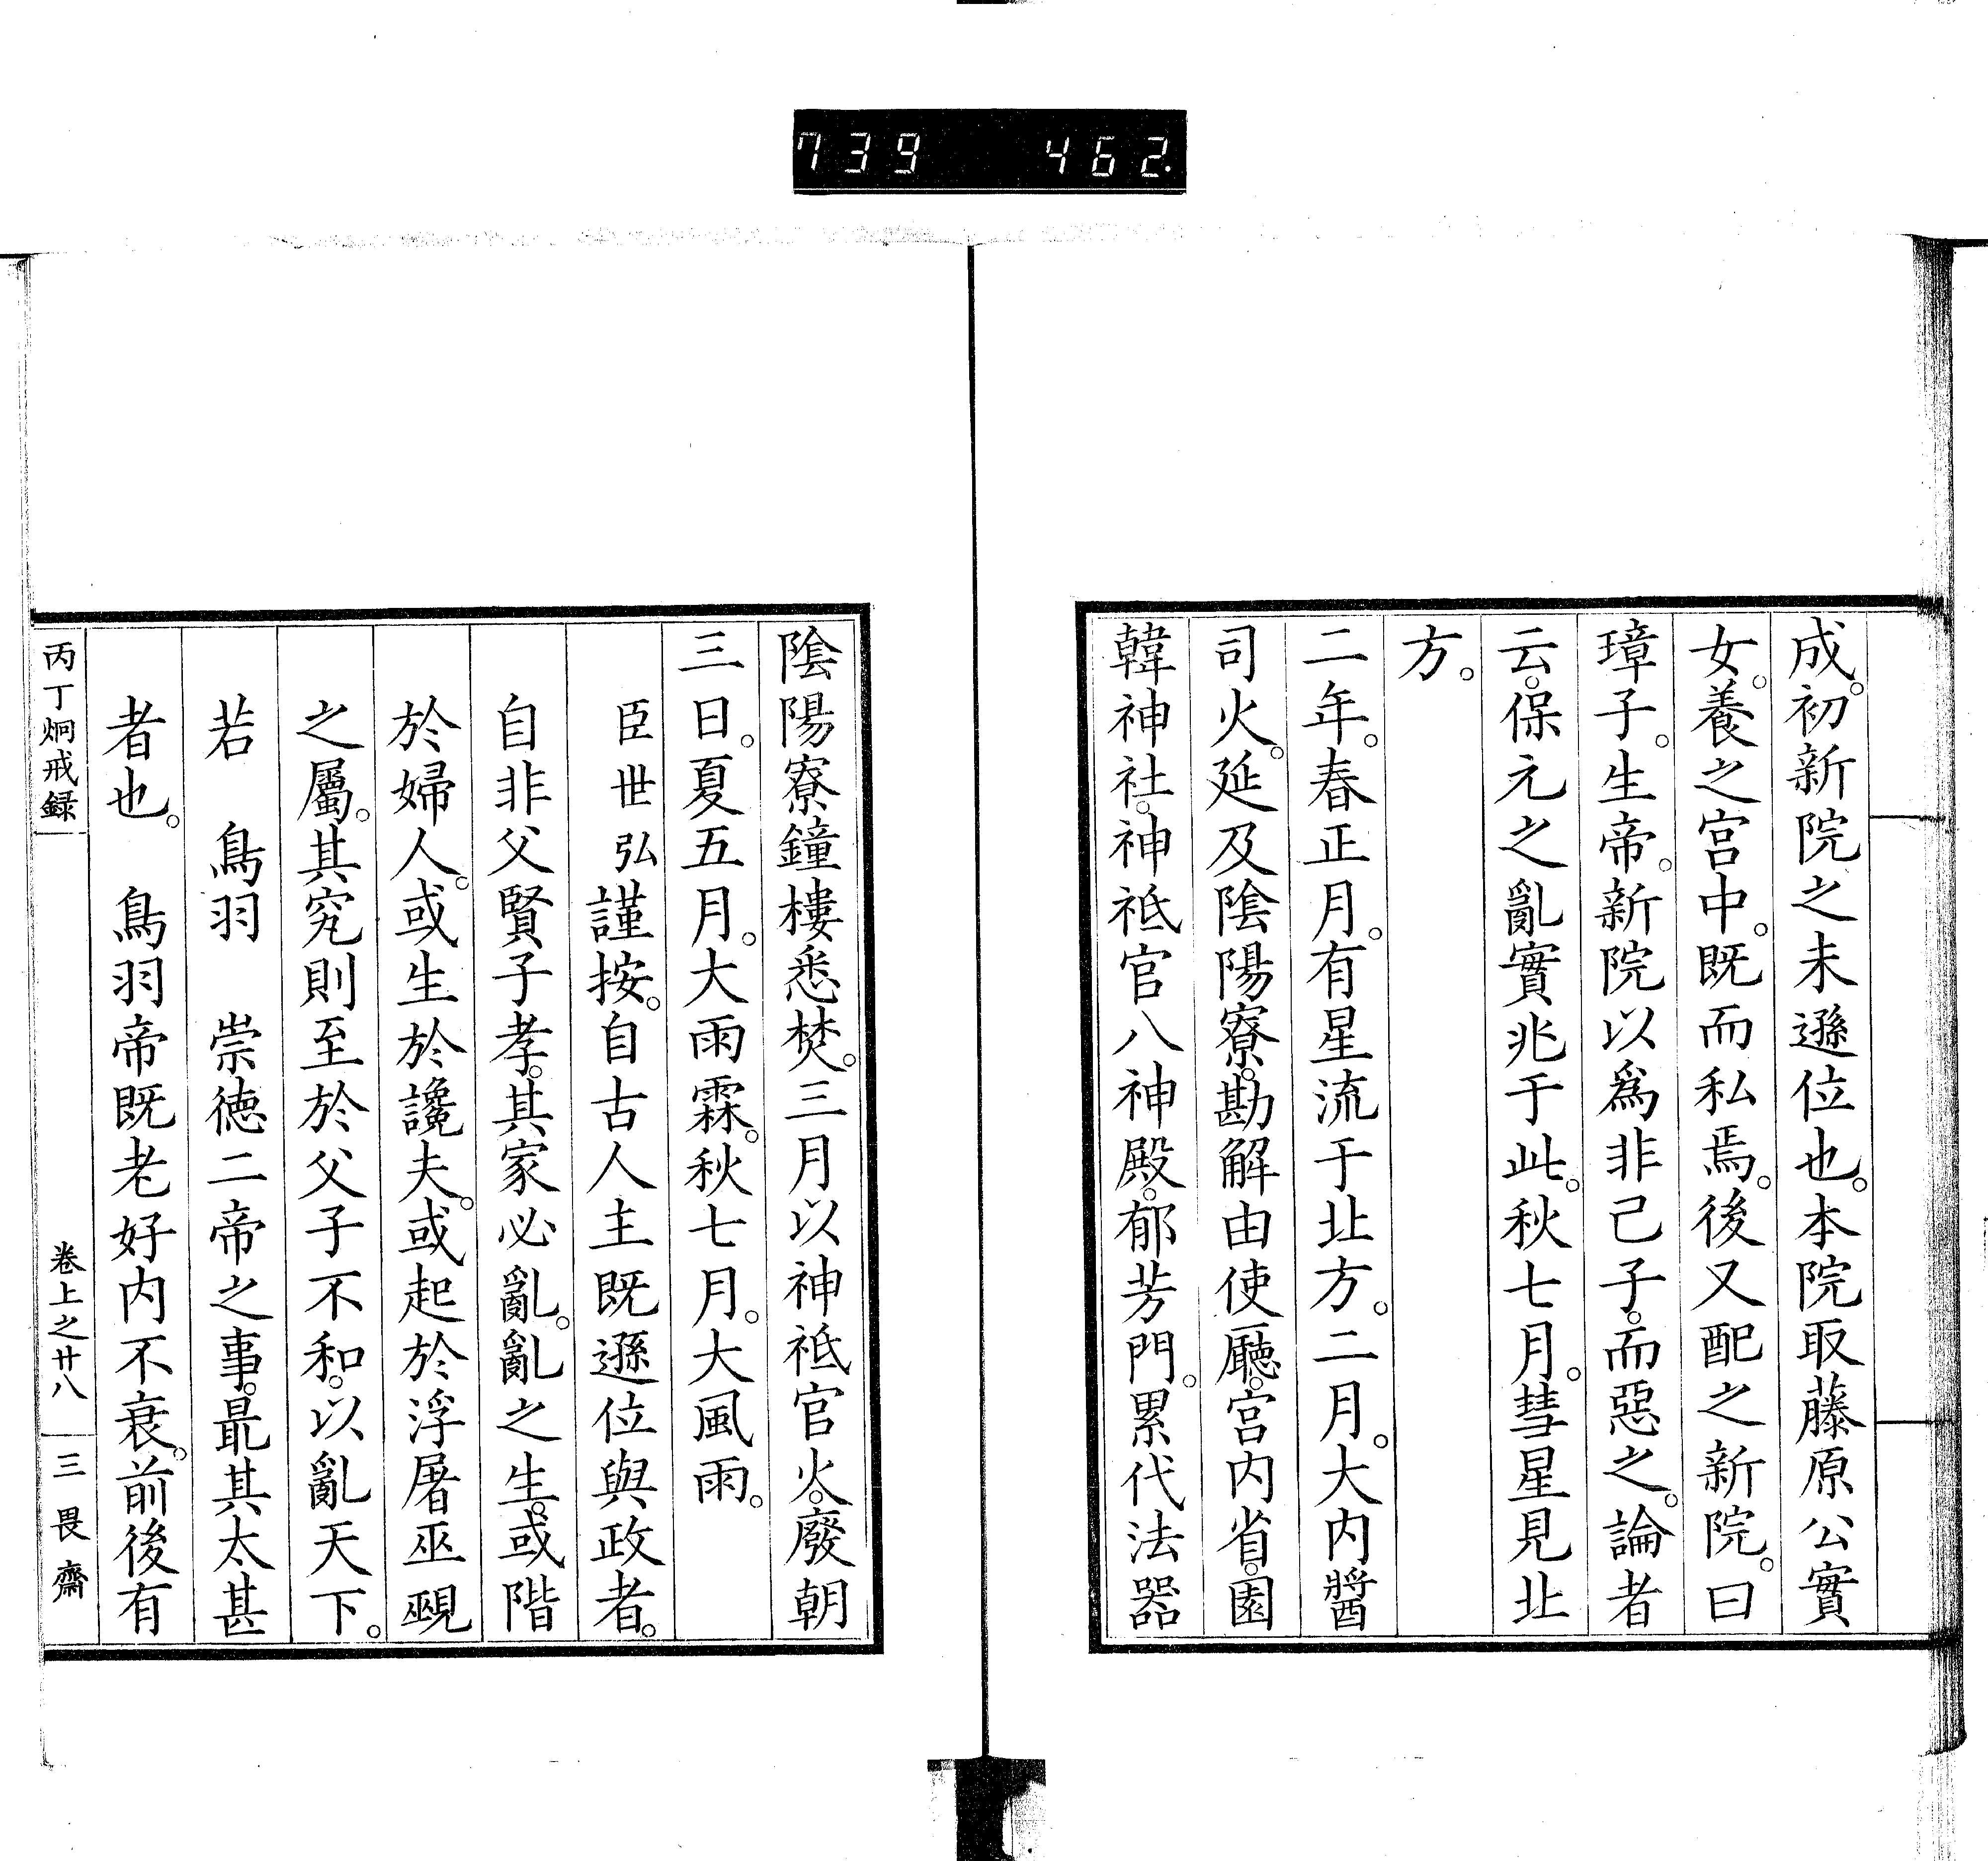 739 462.
成。初新院之未遜位也。本院取藤原公實
女。養之宮中。既而私焉。後又配之新院。曰
璋子。生帝。新院以爲非己子。而惡之。論者
云。保元之亂實兆于此。秋七月。彗星見北
方。
二年。春正月。有星流于北方。二月。大内醬
司火。延及陰陽寮。勘解由使廳。宮内省。園
韓神社。神祇官八神殿。郁芳門。累代法器
陰陽寮鐘樓悉焚。三月以神祇官火。廢朝
三日。夏五月。大雨霖。秋七月。大風雨。
臣世弘謹按。自古人主既遜位與政者。
自非父賢子孝。其家必亂。亂之生。或階
於婦人。或生於讒夫。或起於浮屠巫覡
之屬。其究則至於父子不和。以亂天下。
若　鳥羽　崇徳二帝之事。最其太甚
者也。　鳥羽帝既老好内不衰。前後有
丙丁炯戒録
卷上之廿八
三畏齋